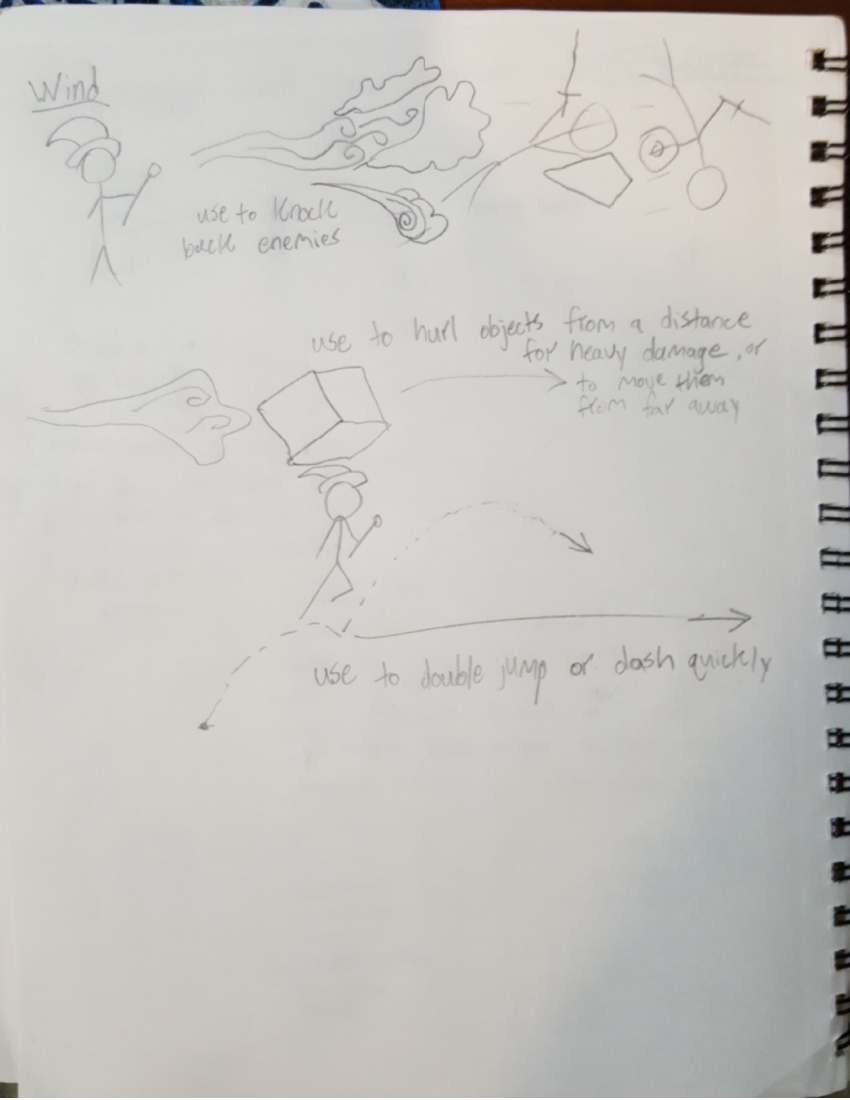 Wind
use to knock
back enemies
use to hurl objects from a distance
for heavy damage, or
to move them
from far away
use to double jump or dash quickly